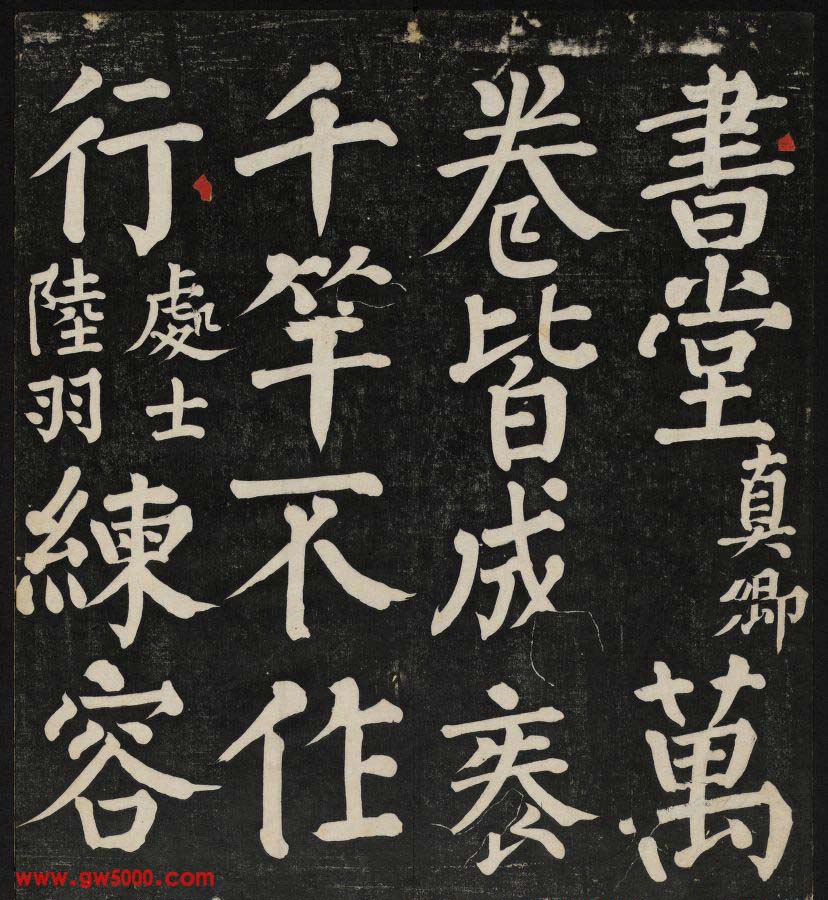 書堂真卿萬
卷皆成袠
千竿不作
行處士陸羽練容
www.gw5000.com